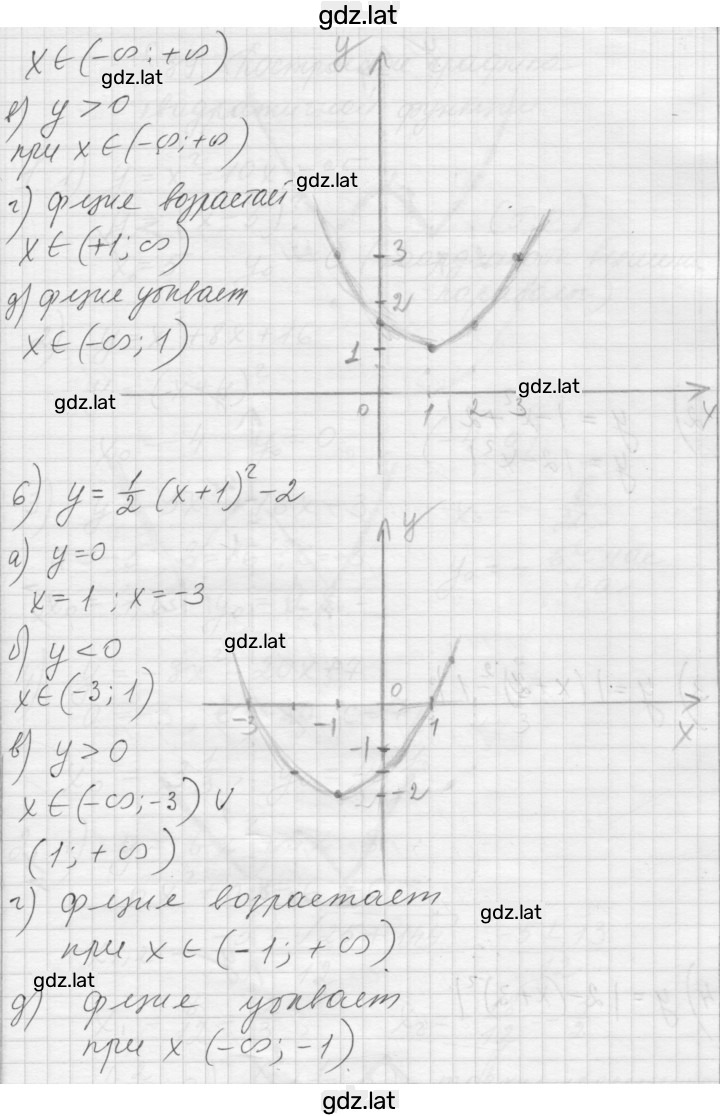 gdz.lat
x ∈ (-∞; +∞)
gdz.lat
в) y > 0
при x ∈ (-∞; +∞)
gdz.lat
г) фция возрастает
x ∈ (+1; ∞)
д) фция убывает
x ∈ (-∞; 1)
gdz.lat
y
3
2
1
0 1 2 3
x
gdz.lat
6) y = 1/2 (x+1)² - 2
а) y = 0
x = 1 ; x = -3
gdz.lat
б) y < 0
x ∈ (-3; 1)
в) y > 0
x ∈ (-∞; -3) ∪
(1; +∞)
y
0
-3 -1 1
x
-1
-2
г) фция возрастает
при x ∈ (-1; +∞)
gdz.lat
gdz.lat
д) фция убывает
при x (-∞; -1)
gdz.lat